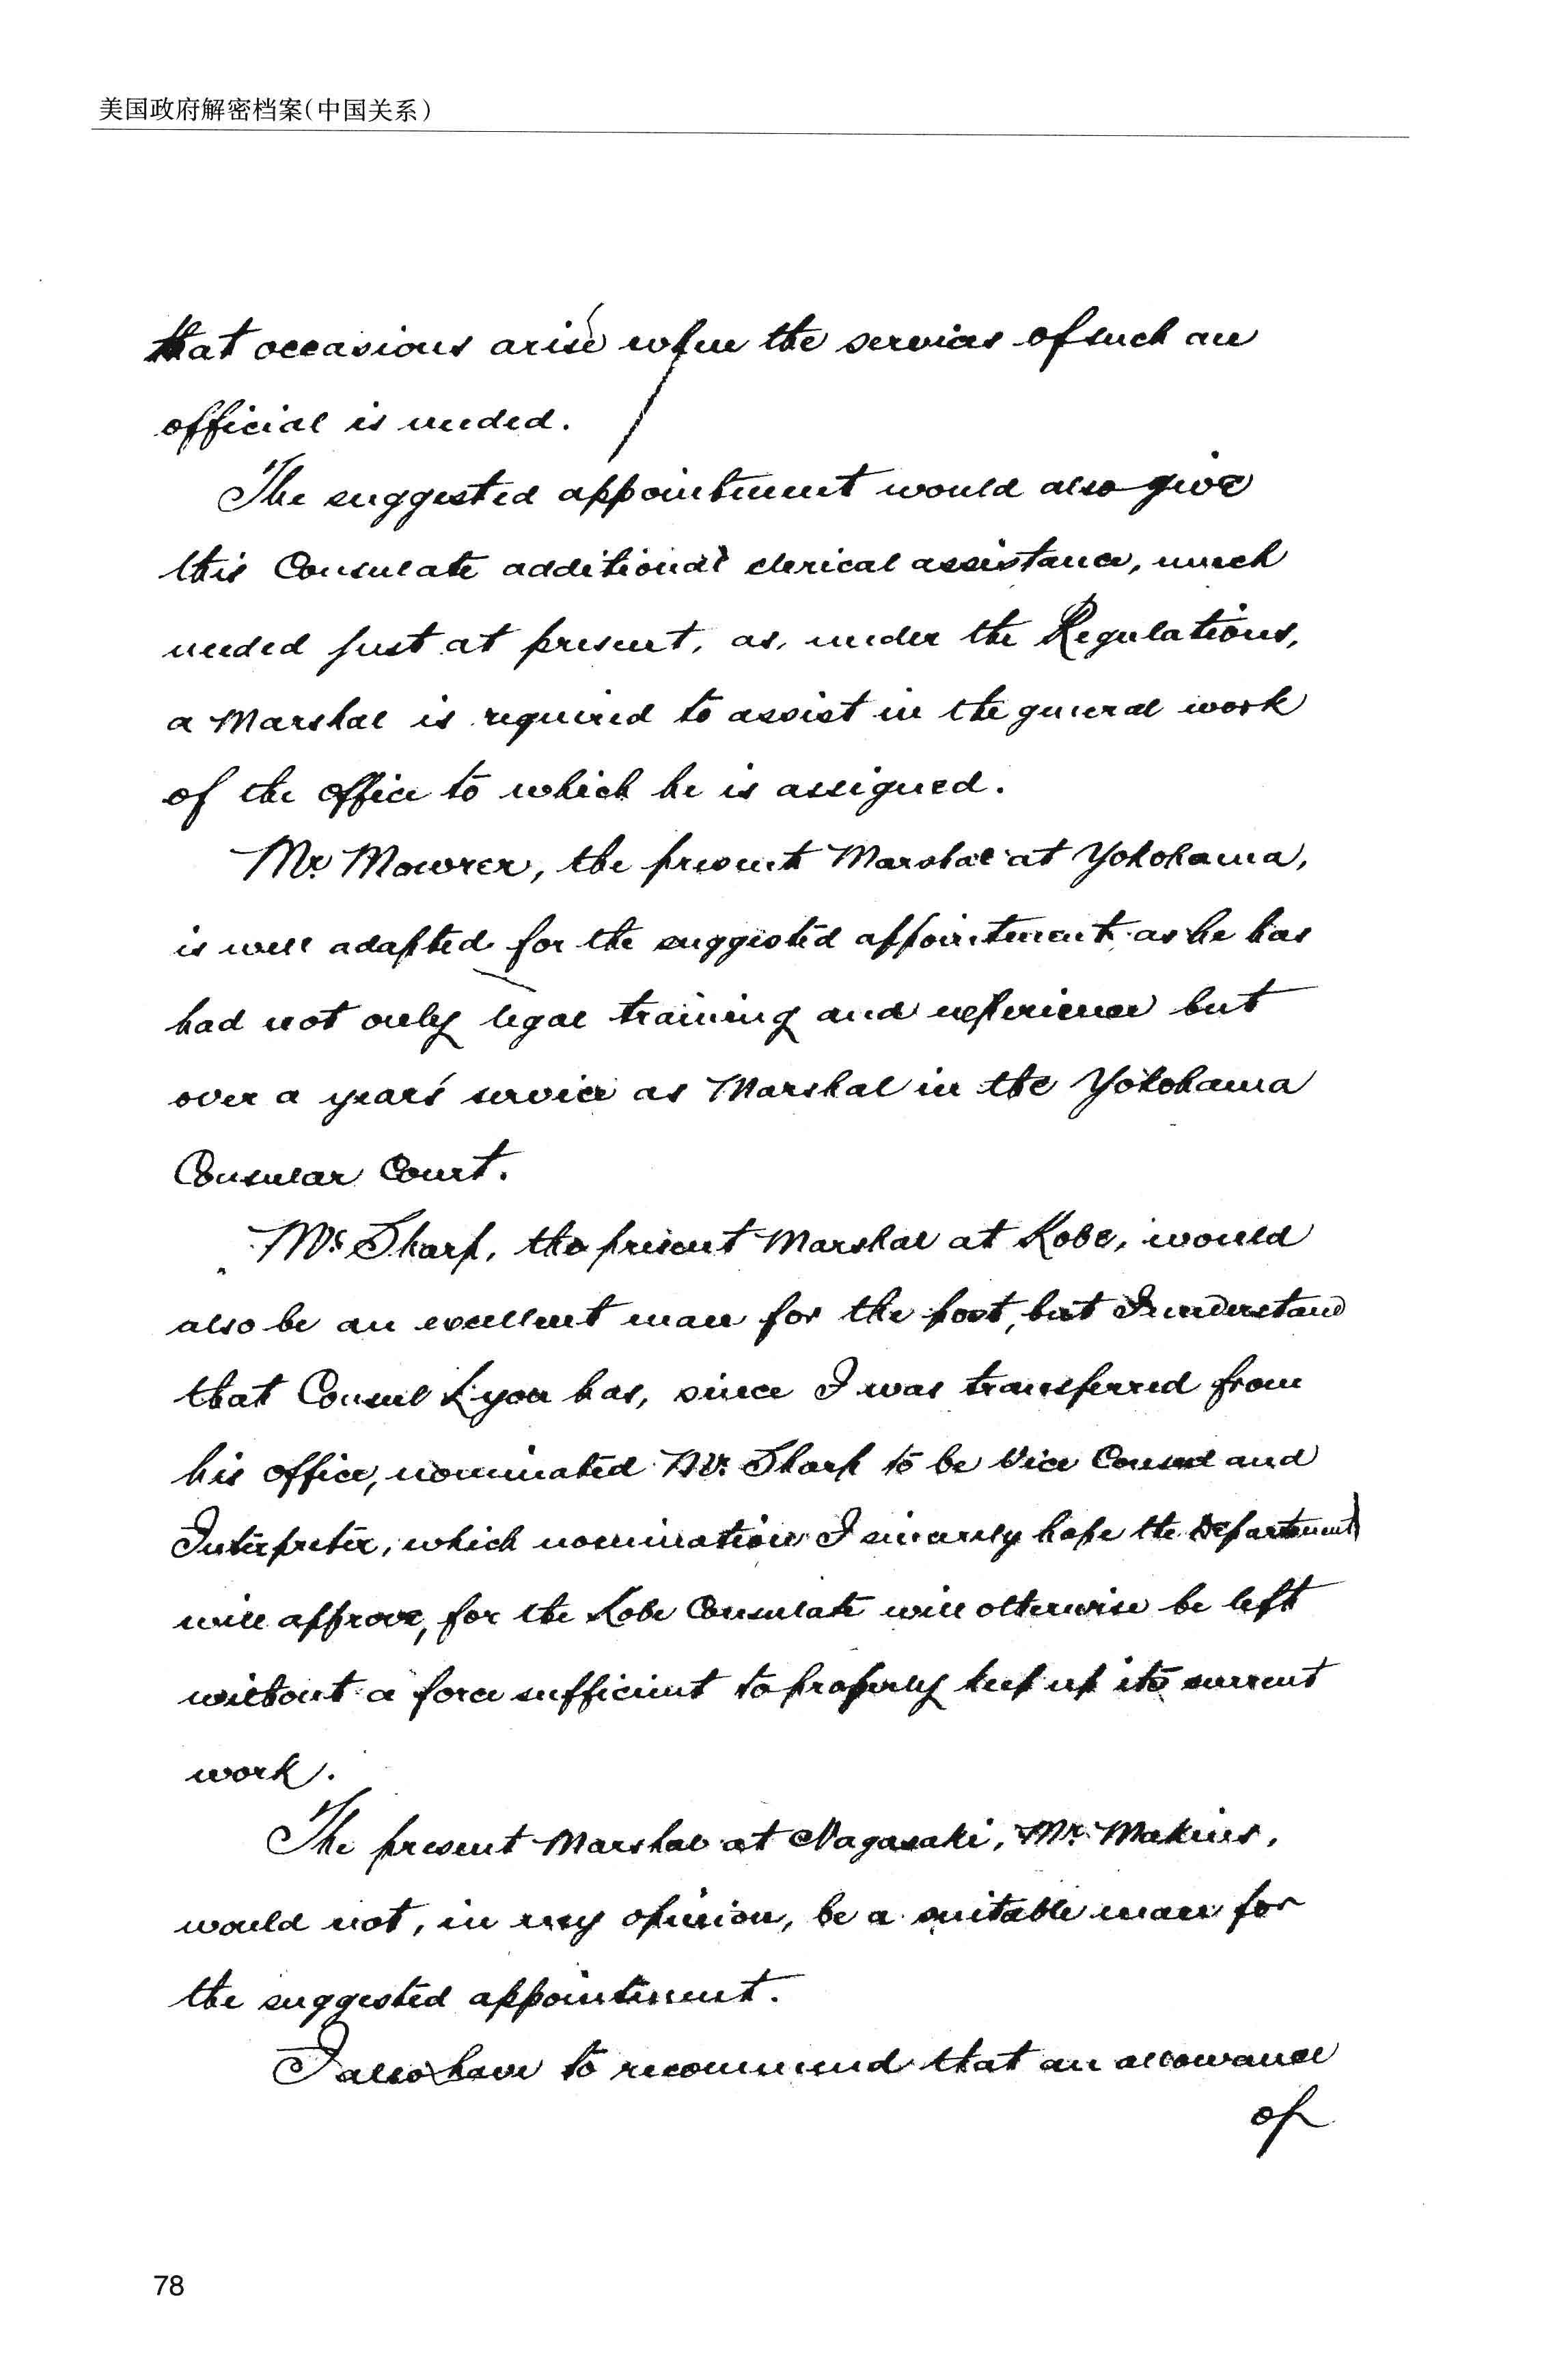 美国政府解密档案(中国关系)
that occasions arise when the services of such an
official is needed.
The suggested appointment would also give
this Consulate additional clerical assistance, much
needed just at present, as, under the Regulations,
a Marshal is required to assist in the general work
of the office to which he is assigned.
Mr. Mowrer, the present Marshal at Yokohama,
is well adapted for the suggested appointment as he has
had not only legal training and experience but
over a year's service as Marshal in the Yokohama
Consular Court.
Mr. Sharp, the present Marshal at Kobe, would
also be an excellent man for the post, but I understand
that Consul Lyon has, since I was transferred from
his office, nominated Mr. Sharp to be Vice Consul and
Interpreter, which nomination I sincerely hope the Department
will approve, for the Kobe Consulate will otherwise be left
without a force sufficient to properly keep up its current
work.
The present Marshal at Nagasaki, Mr. Makins,
would not, in my opinion, be a suitable man for
the suggested appointment.
I also have to recommend that an allowance
of
78